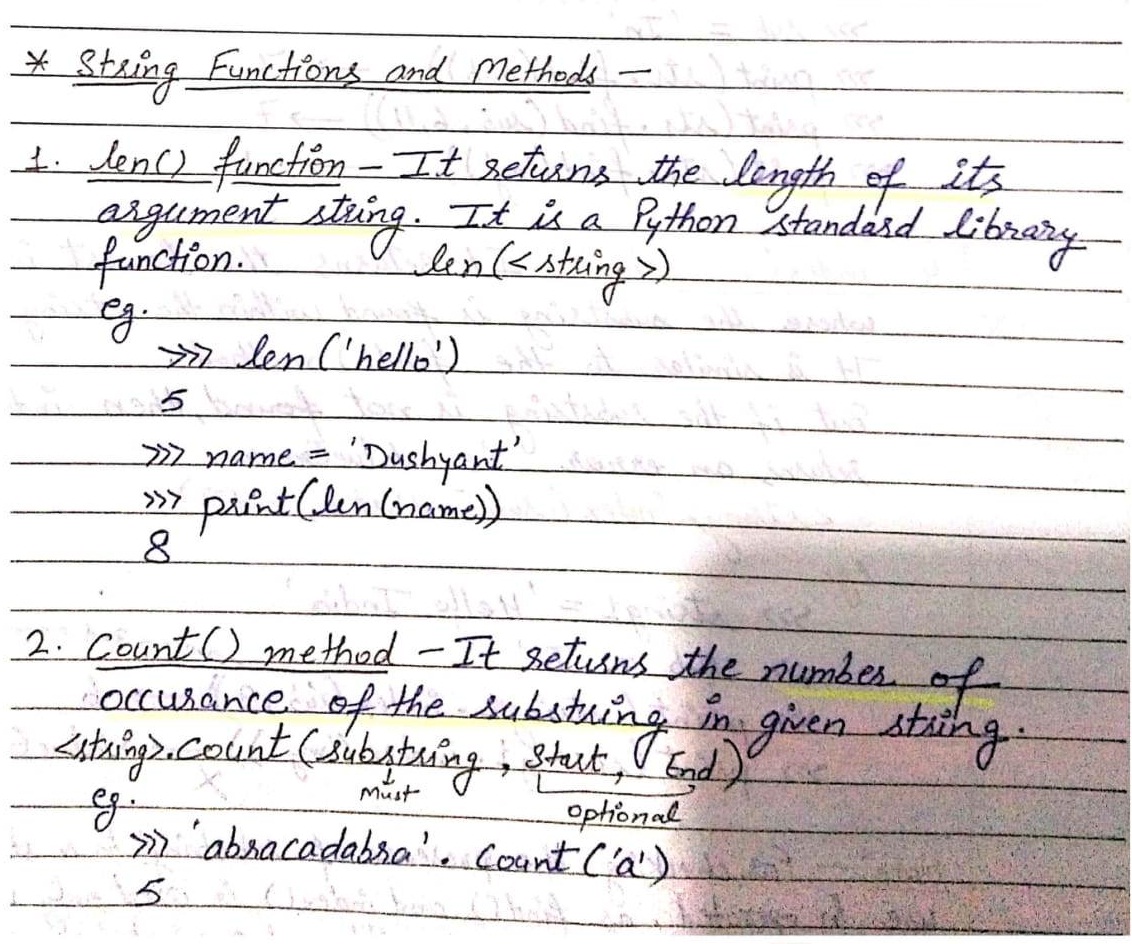 * String Functions and Methods –
1. len() function – It returns the length of its
argument string. It is a Python standard library
function. len(<string>)
eg.
>>> len('hello')
5
>>> name = 'Dushyant'
>>> print(len(name))
8
2. Count() method – It returns the number of
occurance of the substring in given string.
<string>.count(substring, Start, End)
Must
optional
eg.
>>> 'abracadabra'. Count('a')
5